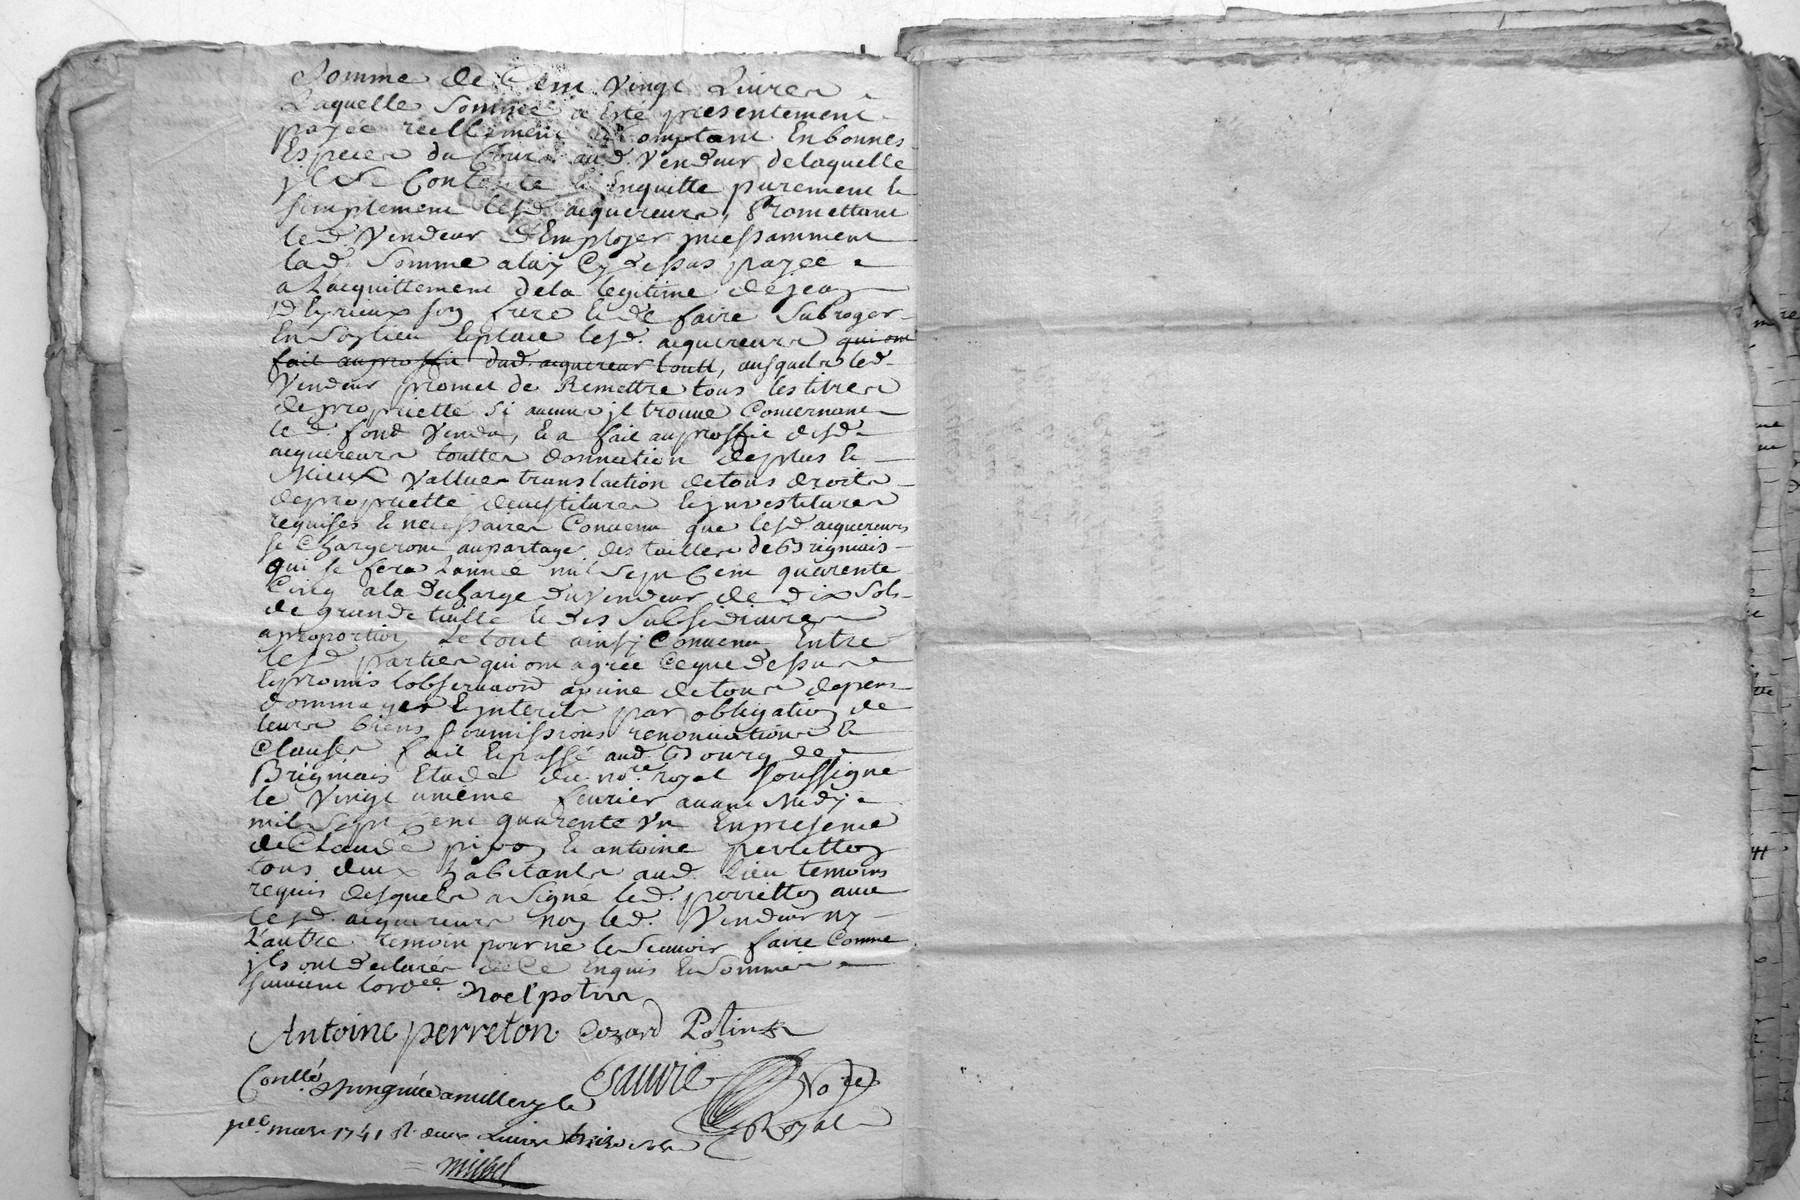 Somme de Cent Vingt Livres
Laquelle Somme a Esté presentement
payée reellement & Comptant En bonnes
Especes du Cours aud. Vendeur delaquelle
yl se Contente Et Enquitte purement Et
simplement lesd. aequereurs, Promettant
led. Vendeur d'Employer incessamment
lad. Somme aluy Cy dessus payée
a L'acquittement dela legitime de jean
Dhyrieux son frere Et de faire Subroger
En Son lieu Et place lesd. aequereurs qui ont
fait auproffit dud. aequereur toutt, ausquels led.
Vendeur promet de Remettre tous les titres
de proprietté si aucuns jl trouve Concernant
le d. fond Vendu, Et a fait auproffit desd.
aequereurs touttes donnation deplus Et
Mieux Vallues translaction detous droits
deproprietté devestitures Et jnvestitures
requises Et necessaires Convenu que lesd. aequereurs
se Chargeront aupartage des tailles de Brignais
qui se fera L'année mil Sept Cent quarente
Cinq ala decharge du Vendeur de dix Sols
de grande taille Et des Subsidiaires
aproportion, Le tout ainsy Convenu Entre
lesd. parties qui ont agreé Ceque dessus
Et promis l'observaon apeine detous depens
dommages Et jnterets par obligation de
leurs biens Soumissions renonciations Et
Clauses fait Et passé aud. Bourg de
Brignais Etude du nore. royal soussigné
le Vingt unieme fevrier avant Midy
mil Sept Cent quarente Vn En presence
de Claude pivon Et antoine perretton
tous deux habitants aud. lieu temoins
requis desquels a Signé led. perretton avec
lesd. aequereurs non led. Vendeur ny
L'autre temoin pour ne le Scavoir faire Comme
jls ont declarés de Ce Enquis Et Sommés
suivant lordce. Noel potin
Antoine perreton Potin
Sauvie Nore.
Royal
Conllé. Et jnsinüé amillery le
per. mars 1741 R. deux Livres sols
michel